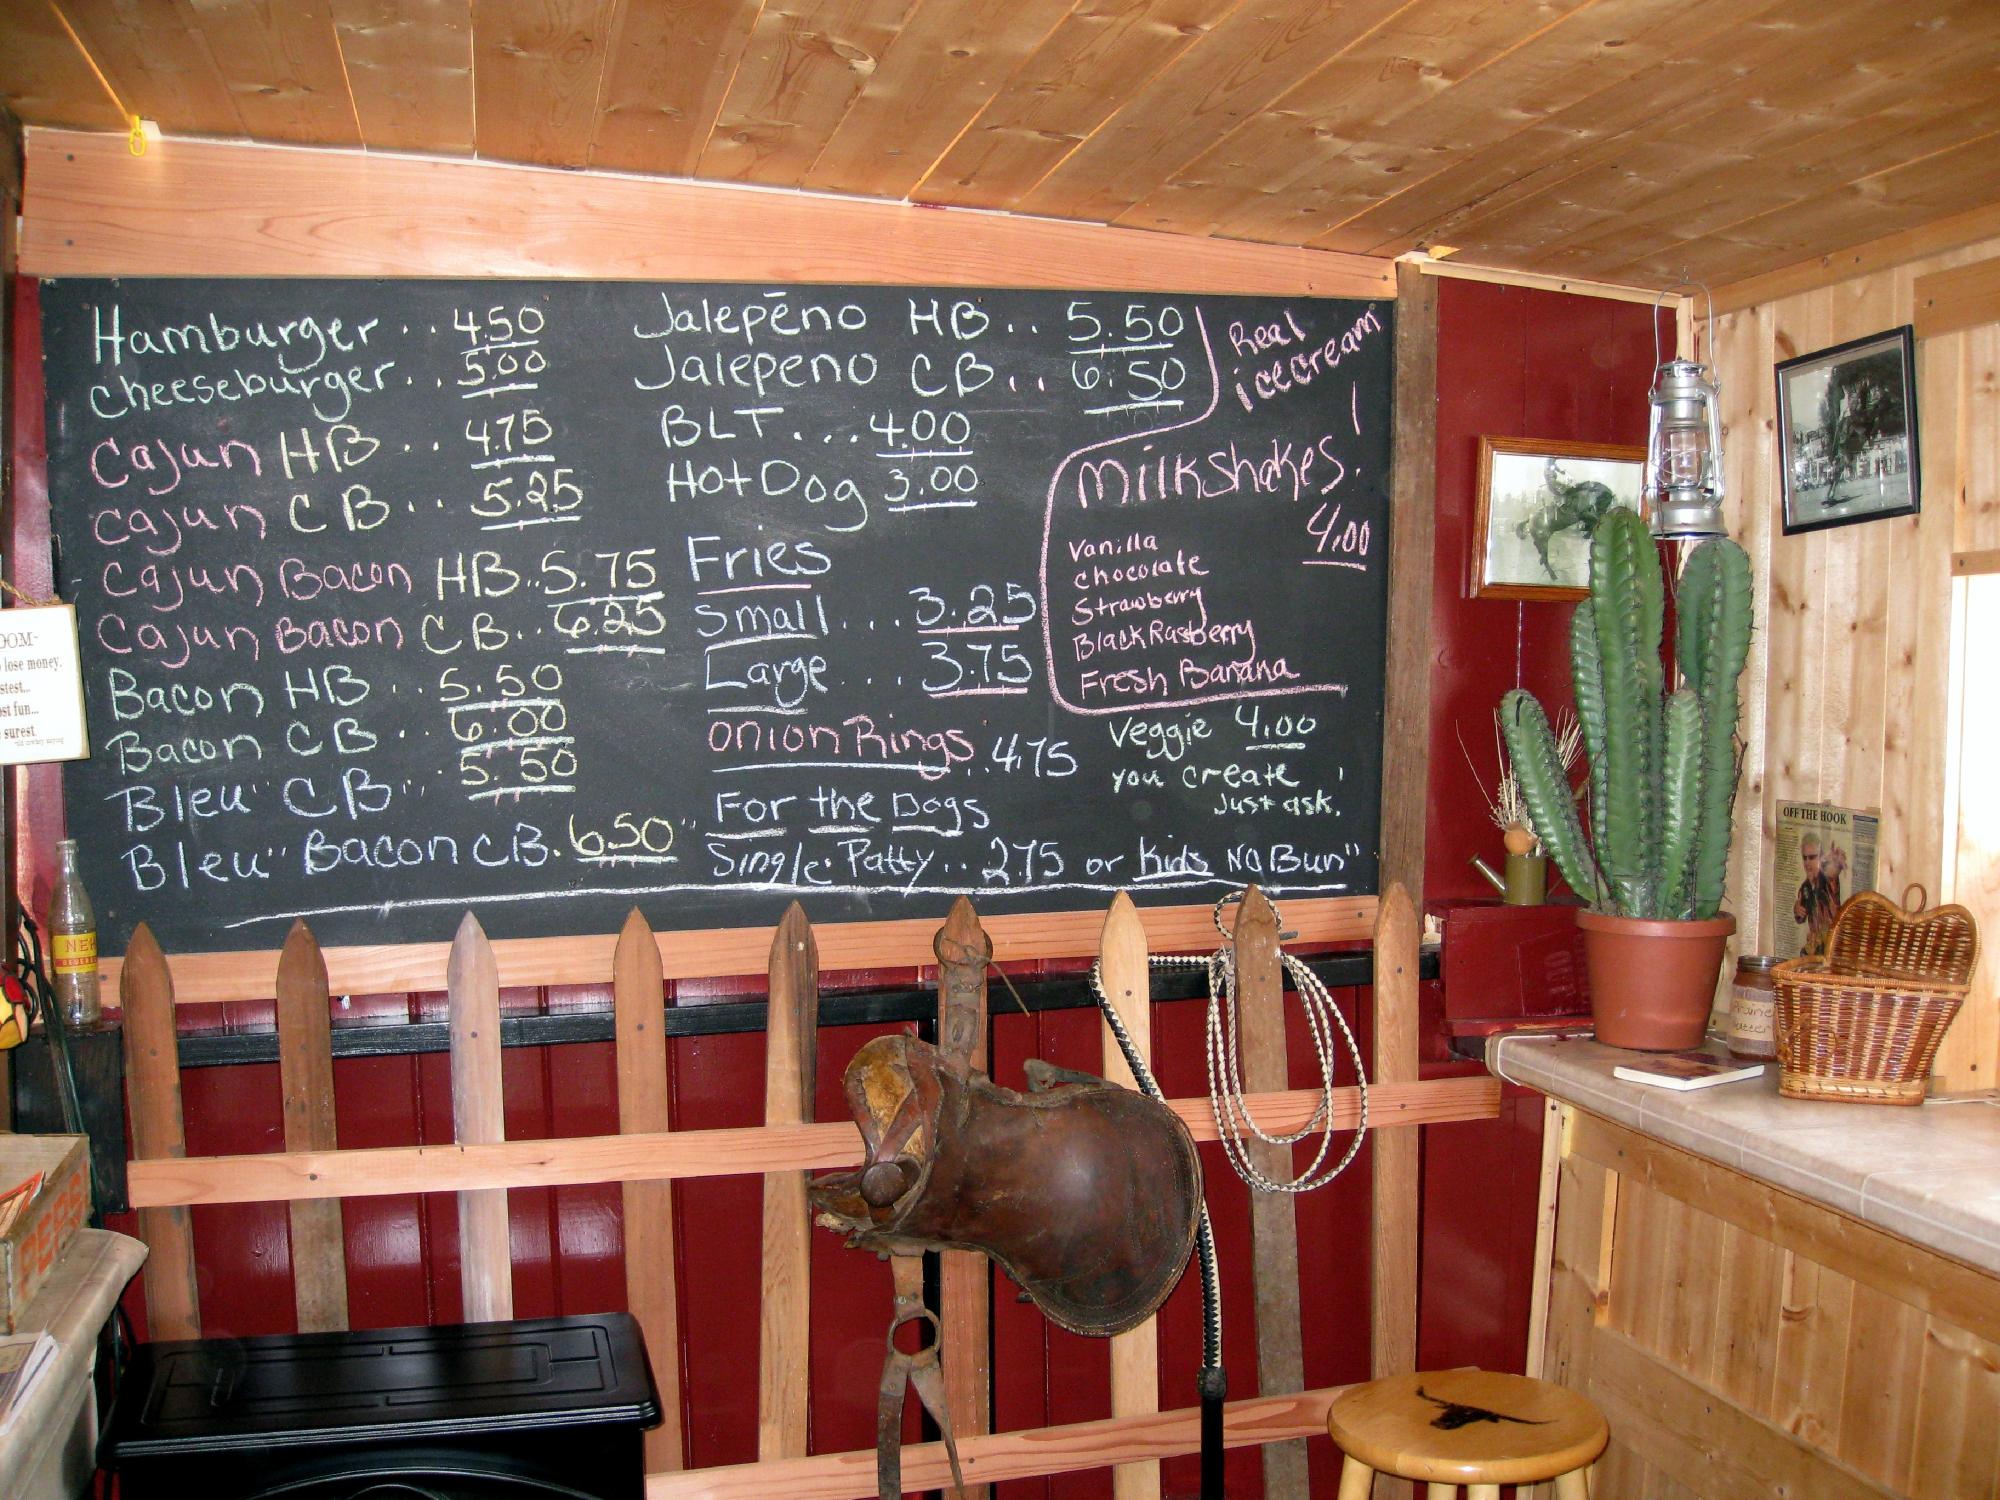 Hamburger .. 4.50
cheeseburger .. 5.00
Cajun HB .. 4.75
Cajun CB .. 5.25
Cajun Bacon HB .. 5.75
Cajun Bacon CB .. 6.25
Bacon HB .. 5.50
Bacon CB .. 6.00
Bleu" CB" .. 5.50
Bleu" Bacon CB . 6.50"
Jalepēno HB .. 5.50
Jalepeno CB .. 6.50
BLT ... 4.00
Hot Dog 3.00
Fries
Small ... 3.25
Large ... 3.75
Onion Rings .. 4.75
For the Dogs
Single Patty .. 2.75 or Kids No Bun"
Real
icecream!
Milkshakes!
4.00
Vanilla
chocolate
Strawberry
Black Rasberry
Fresh Banana
Veggie 4.00
you create
Just ask.!
lose money.
surest.
OFF THE HOOK
NEH
PEPS